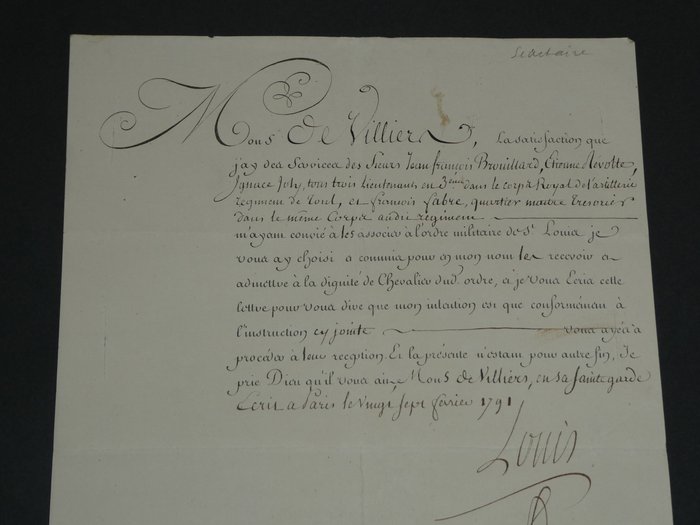 Secretaire
Mons. De Villiers, La satisfaction que
j'ay des Services des Sieurs Jean françois Brouillard, Etienne Revolte,
Ignace Joly, tous trois Lieutenants en 3.eme dans le corps Royal de l'artillerie
regiment de Toul, et françois fabre, quartier maitre Tresorier
dans le même Corps audit régiment
m'ayant convié à les associer à l'ordre militaire de St. Louis je
vous ay choisi et commis pour en mon nom les recevoir et
admettre à la dignité de Chevalier dud. ordre, et je vous Ecris cette
lettre pour vous dire que mon intention est que conformément à
l'instruction cy jointe vous ayés à
procéder à leur reception. Et la présente n'estant pour autre fin, Je
prie Dieu qu'il vous ait, Mons. de Villiers, en sa sainte garde
Ecrit à Paris le vingt sept février 1791
Louis